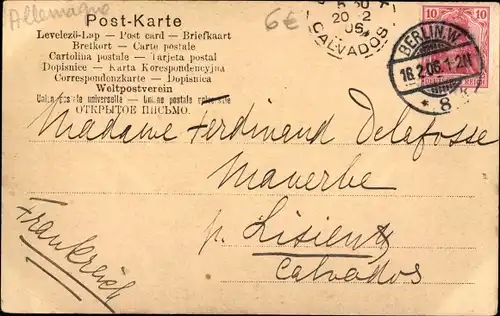 Allemagne
6€
Post-Karte
Levelező-Lap — Post card — Briefkaart
Bretkort — Carte postale
Cartolina postale — Tarjeta postal
Dopisnice — Karta Korespondencyjna
Correspondenzkarte — Dopisnica
Weltpostverein
Union postale universelle — Unione postale universale
ОТКРЫТОЕ ПИСЬМО.
20 2
06
CALVADOS
10 10
BERLIN.W.
18.2.06.1-2N.
* 8
Madame Ferdinand Delafosse
Maverbe
p. Lisieux
Calvados
Frankreich